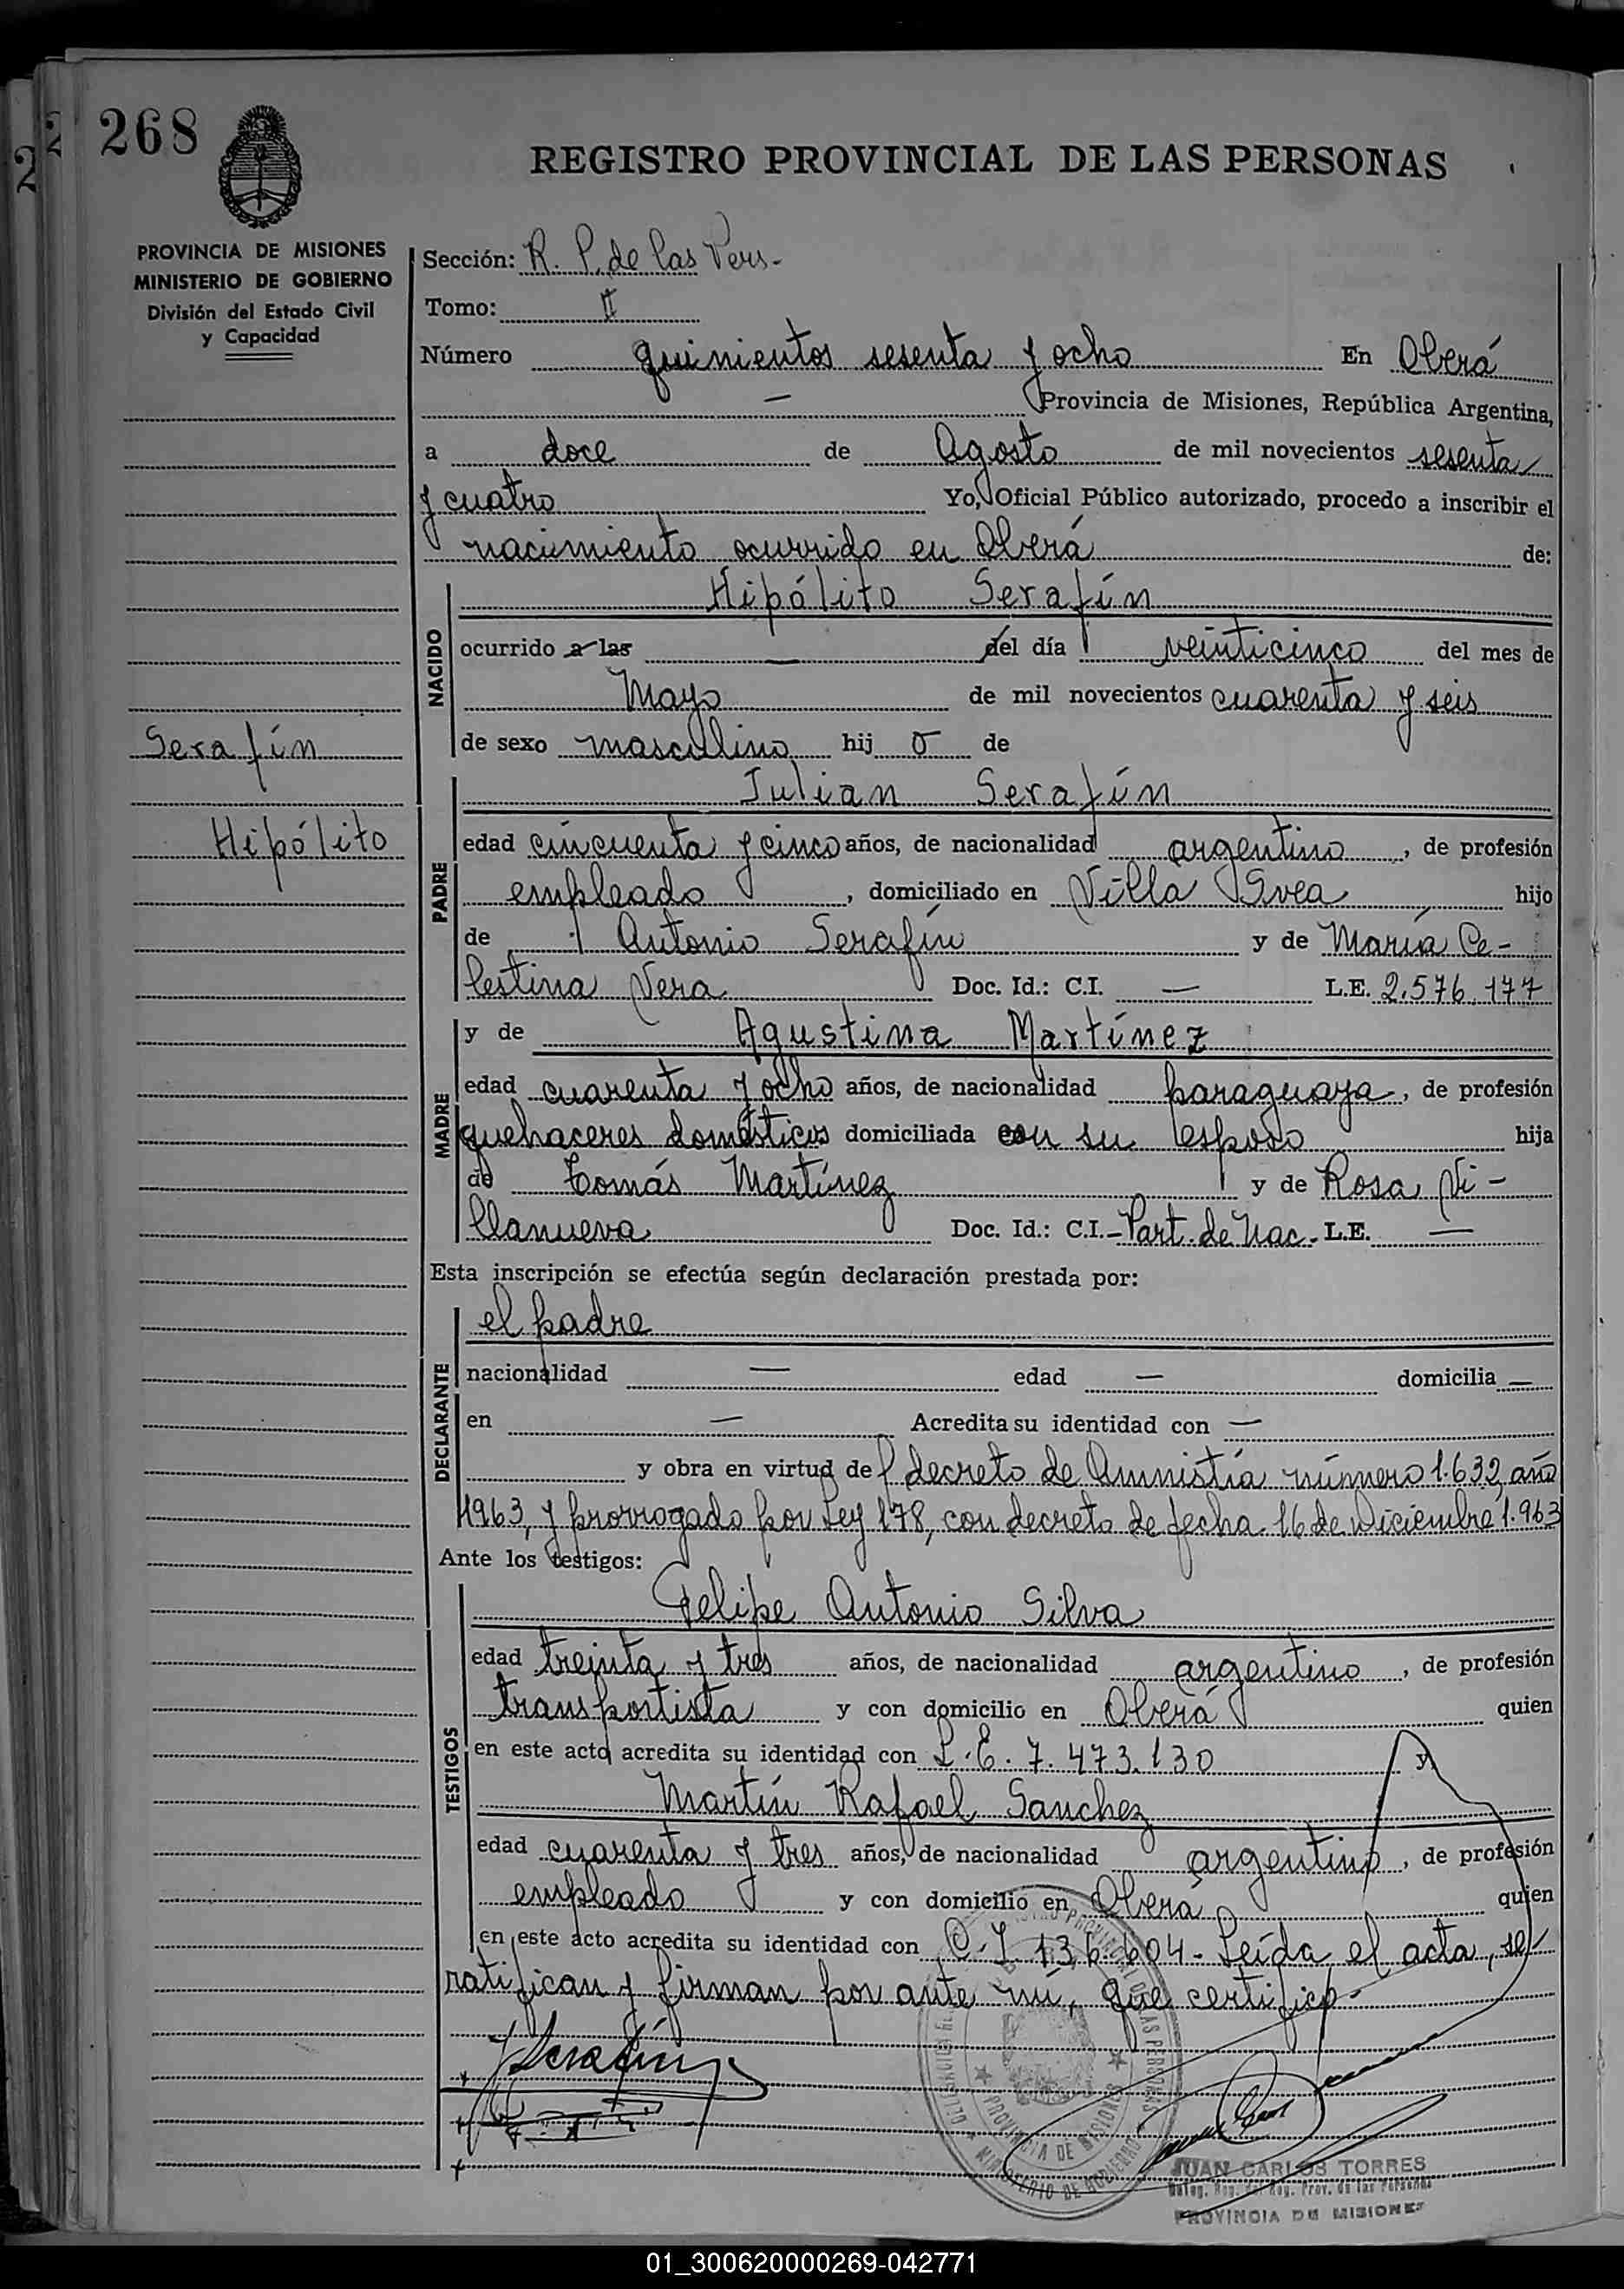 268
REGISTRO PROVINCIAL DE LAS PERSONAS
PROVINCIA DE MISIONES
MINISTERIO DE GOBIERNO
División del Estado Civil
y Capacidad
Serafín
Hipólito
Sección: R. P. de las Pers.-
Tomo: II
Número quinientos sesenta y ocho En Oberá
— Provincia de Misiones, República Argentina,
a doce de Agosto de mil novecientos sesenta
y cuatro Yo, Oficial Público autorizado, procedo a inscribir el
nacimiento ocurrido en Oberá de:
NACIDO
Hipólito Serafín
ocurrido a las — del día veinticinco del mes de
Mayo de mil novecientos cuarenta y seis
de sexo masculino hij o de
PADRE
Julian Serafín
edad cincuenta y cinco años, de nacionalidad argentino, de profesión
empleado, domiciliado en Villa Svea hijo
de Antonio Serafín y de María Ce-
lestina Vera Doc. Id.: C.I. — L.E. 2.576.177
MADRE
y de Agustina Martínez
edad cuarenta y ocho años, de nacionalidad paraguaya, de profesión
quehaceres domésticos domiciliada con su esposo hija
de Tomás Martínez y de Rosa Vi-
llanueva Doc. Id.: C.I.- Part. de Nac.- L.E. —
Esta inscripción se efectúa según declaración prestada por:
DECLARANTE
el padre
nacionalidad — edad — domicilia —
en — Acredita su identidad con —
y obra en virtud del decreto de Amnistía número 1.632, año
1963, y prorrogado por Ley 178, con decreto de fecha 16 de Diciembre 1.963
Ante los testigos:
TESTIGOS
Felipe Antonio Silva
edad treinta y tres años, de nacionalidad argentino, de profesión
transportista y con domicilio en Oberá quien
en este acto acredita su identidad con L.E. 7.473.130 y
Martín Rafael Sanchez
edad cuarenta y tres años, de nacionalidad argentino, de profesión
empleado y con domicilio en Oberá quien
en este acto acredita su identidad con C.I 136.604- Leída el acta, se
ratifican y firman por ante mí, que certifico-
J Serafín
PROVINCIA DE MISIONES
MINISTERIO DE GOBIERNO
JUAN CARLOS TORRES
PROVINCIA DE MISIONES
01_300620000269-042771